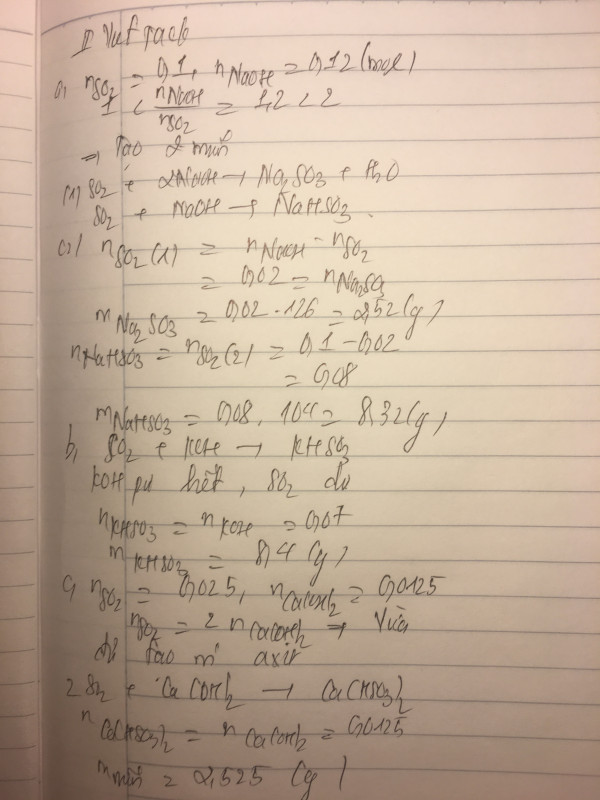 II Viết PTPƯ
a, nSO2 = 0,1, nNaOH = 0,12 (mol)
1 < nNaOH / nSO2 = 1,2 < 2
⇒ Tạo 2 muối
(1) SO2 + 2NaOH → Na2SO3 + H2O
SO2 + NaOH → NaHSO3.
nSO2 (1) = nNaOH - nSO2
= 0,02 = nNa2SO3
mNa2SO3 = 0,02 . 126 = 2,52 (g)
nNaHSO3 = nSO2(2) = 0,1 - 0,02
= 0,08
mNaHSO3 = 0,08 . 104 = 8,32 (g)
b, SO2 + KOH → KHSO3
KOH pư hết, SO2 dư
nKHSO3 = nKOH = 0,07
mKHSO3 = 8,4 (g)
c, nSO2 = 0,025, nCa(OH)2 = 0,0125
nSO2 = 2 nCa(OH)2 ⇒ vừa
đủ tạo m' axit
2SO2 + Ca(OH)2 → Ca(HSO3)2
nCa(HSO3)2 = nCa(OH)2 = 0,0125
mmuối = 2,525 (g)